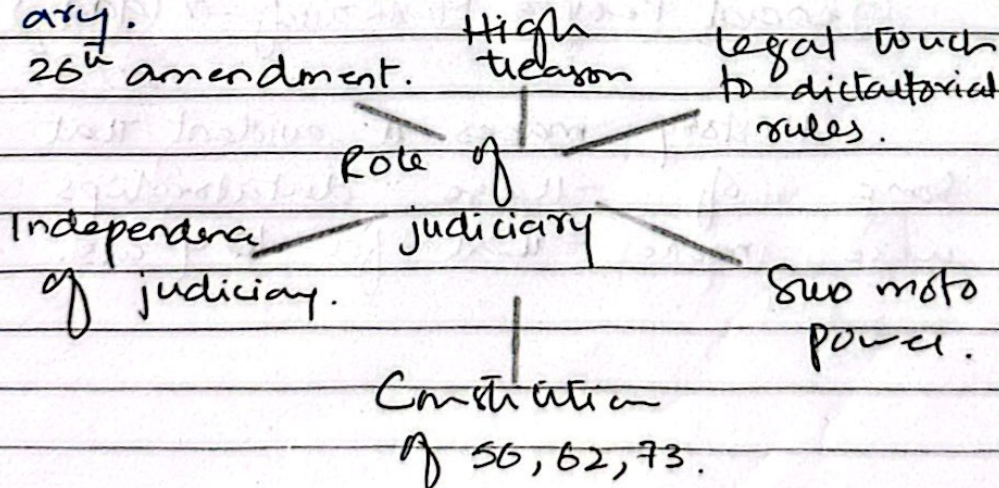 ary.
26th amendment.
High
treason
Legal touch
to dictatorial
rules.
Role of
judiciary
Independence
of judiciary.
Suo moto
power.
Constitution
of 56, 62, 73.